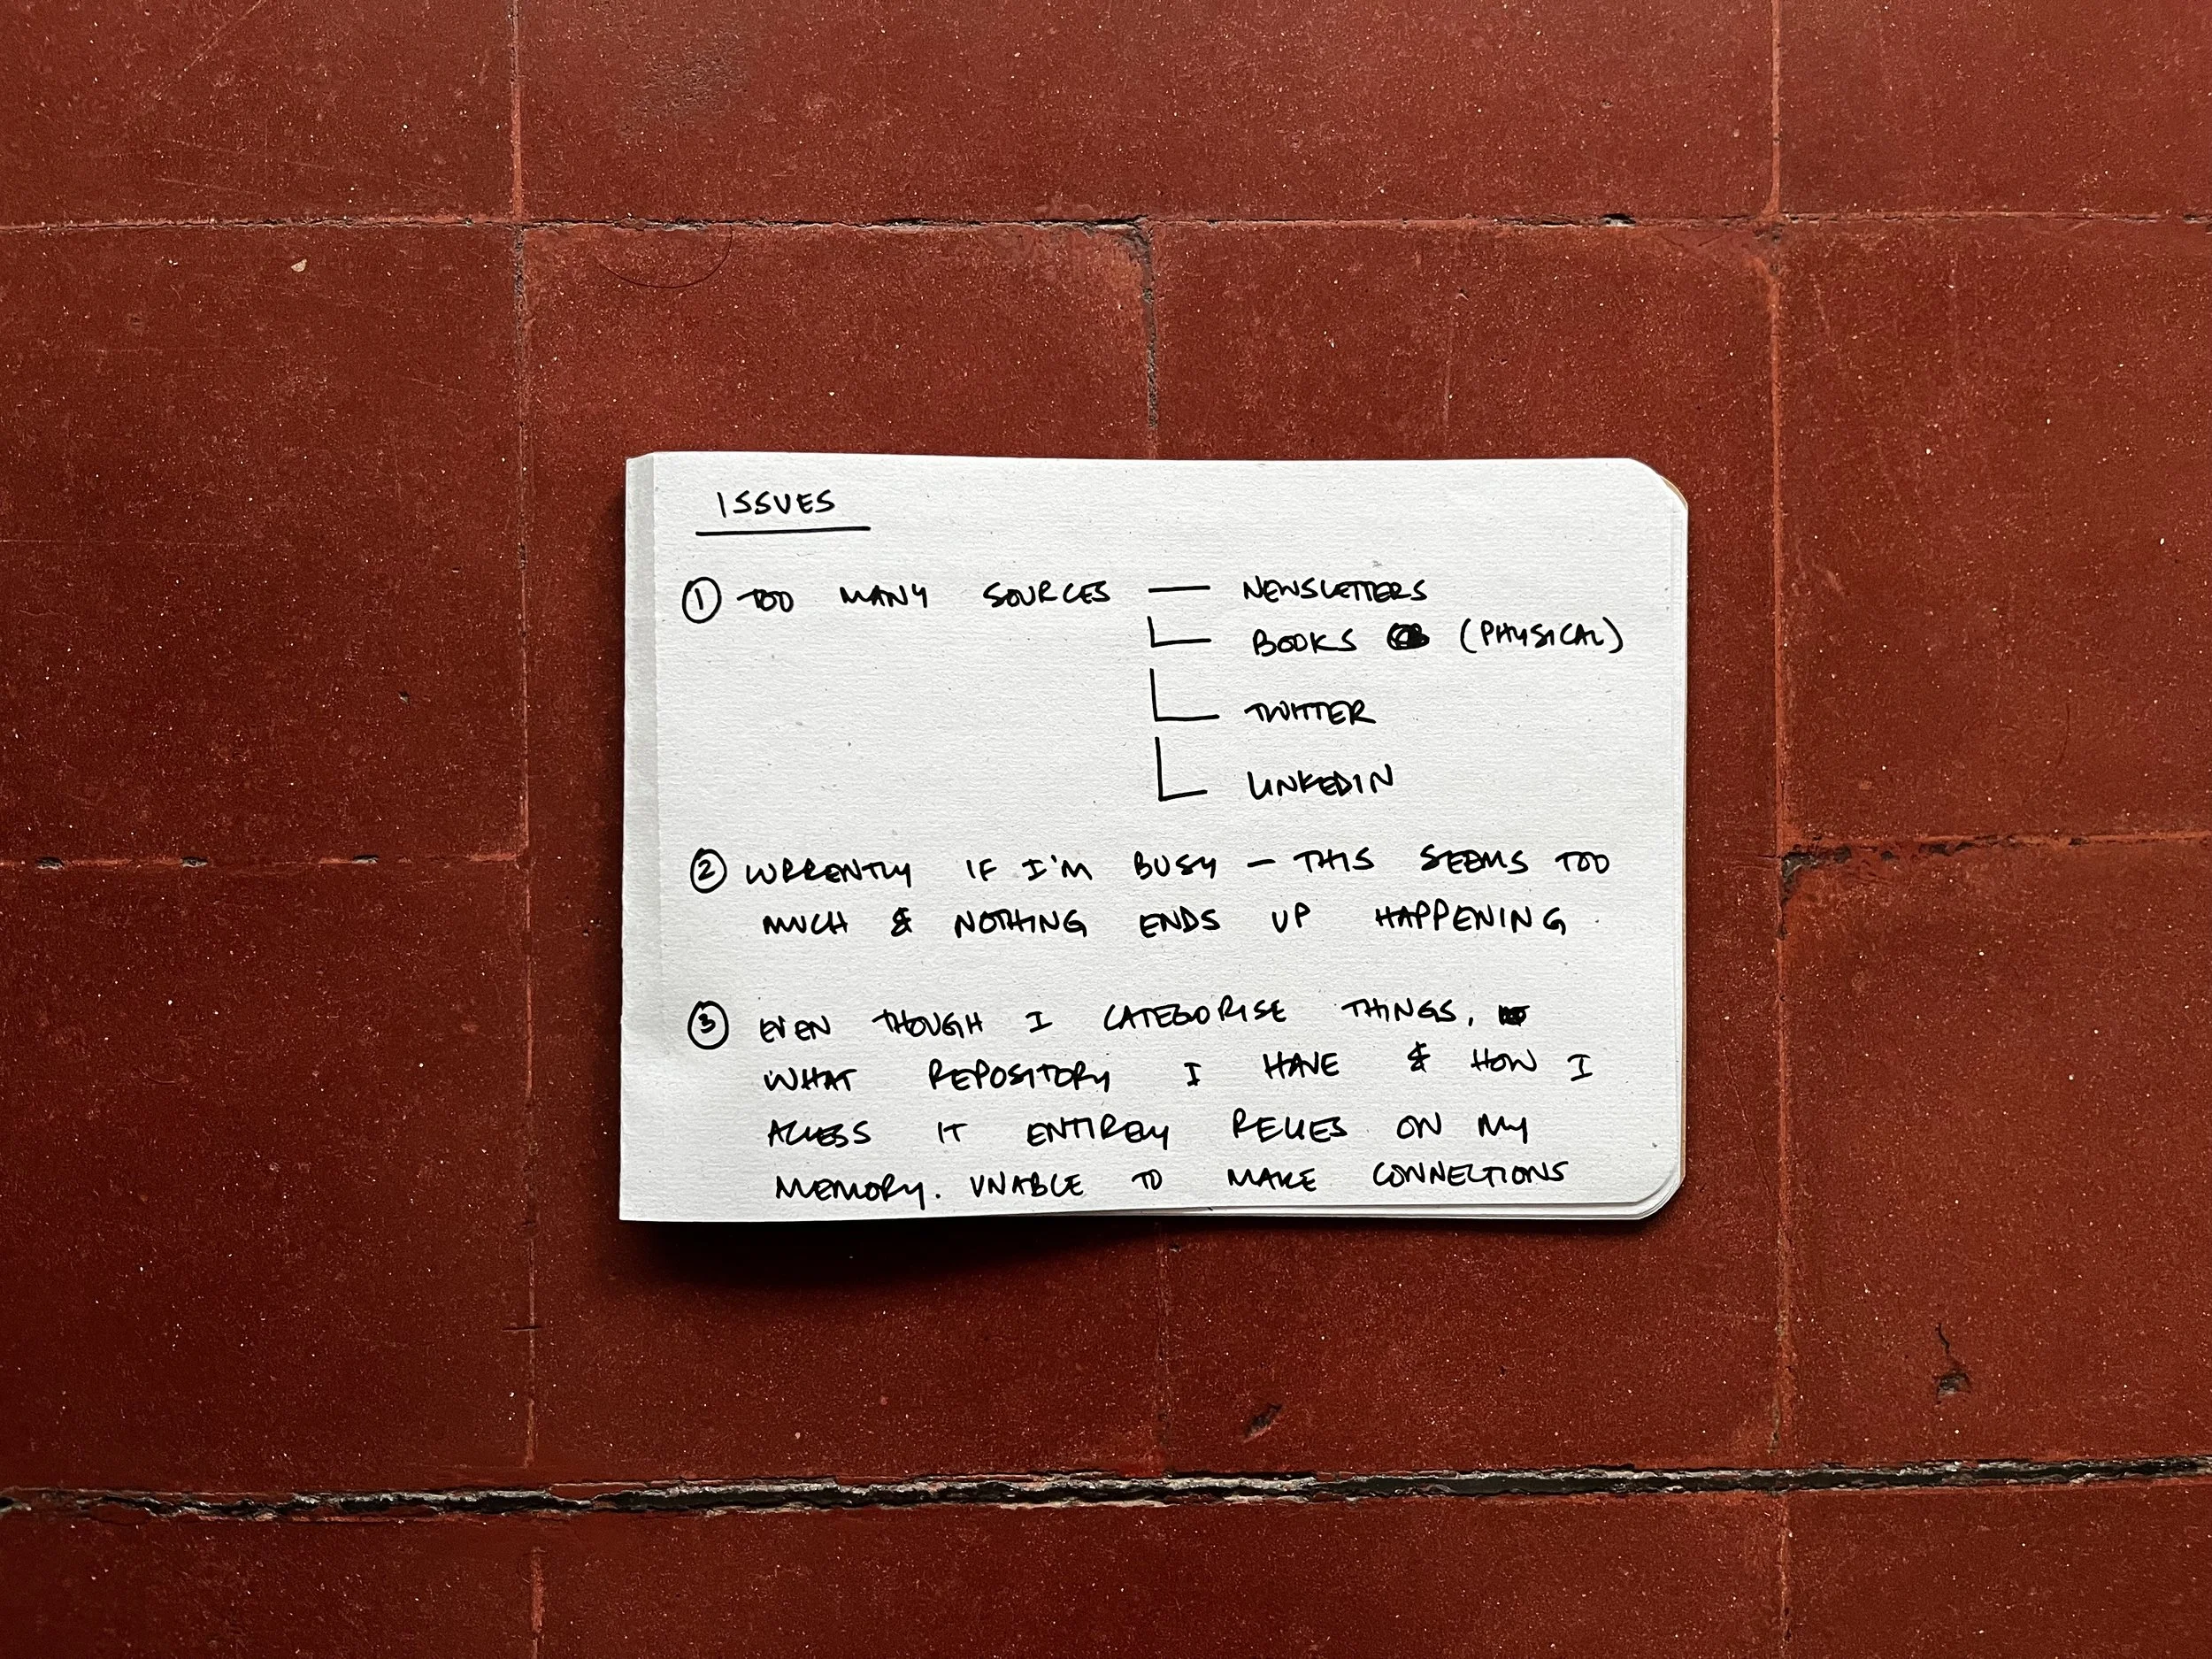 ISSUES
① TOO MANY SOURCES — NEWSLETTERS
BOOKS (PHYSICAL)
TWITTER
LINKEDIN
② CURRENTLY IF I'M BUSY — THIS SEEMS TOO
MUCH & NOTHING ENDS UP HAPPENING.
③ EVEN THOUGH I CATEGORISE THINGS,
WHAT REPOSITORY I HAVE & HOW I
ACCESS IT ENTIRELY RELIES ON MY
MEMORY. UNABLE TO MAKE CONNECTIONS